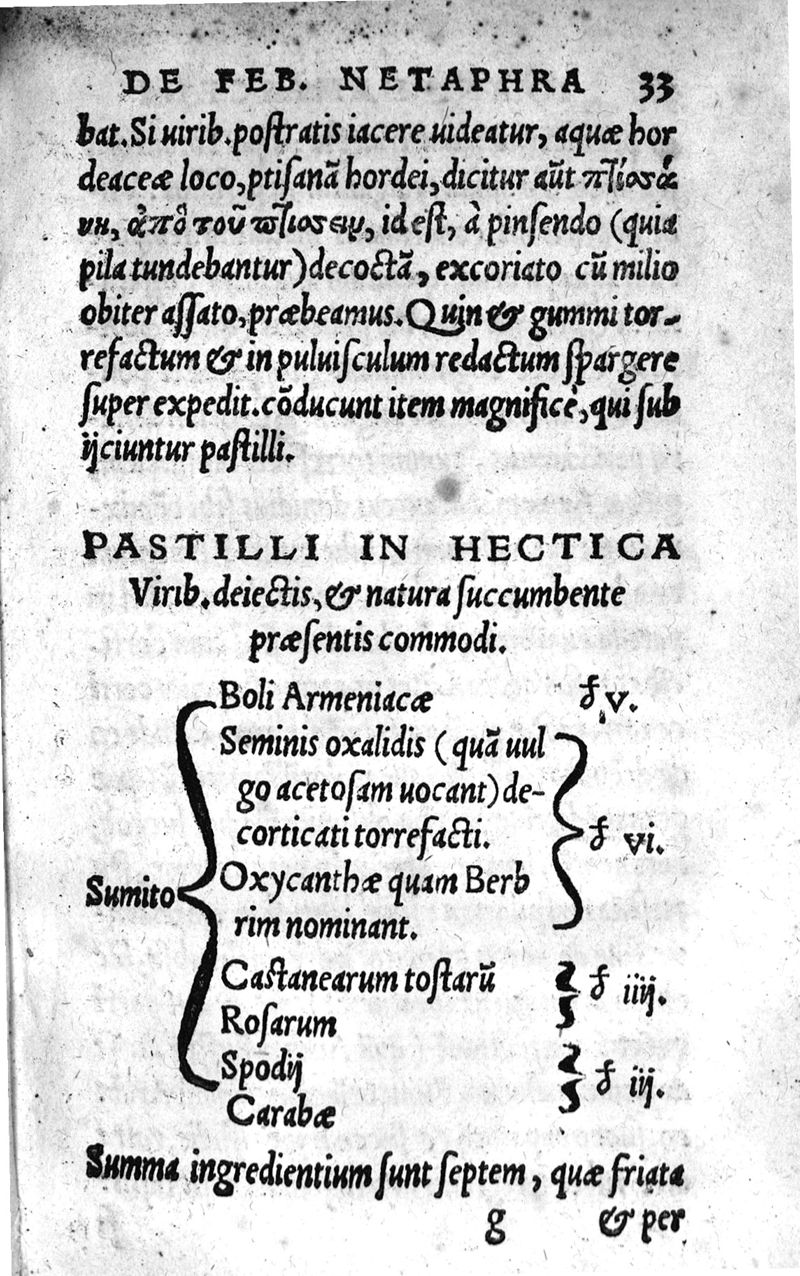 DE FEB. NETAPHRA 33
bat. Si uirib. poſtratis iacere uideatur, aquæ hor
deaceæ loco, ptiſanā hordei, dicitur aūt πτίσσά
νη, ἀπὸ τοῦ πτίσσειν, id eſt, à pinſendo (quia
pila tundebantur) decoctā, excoriato cū milio
obiter aſſato, præbeamus. Quin & gummi tor-
refactum & in puluiſculum redactum ſpargere
ſuper expedit. cōducunt item magnificè, qui ſub
ijciuntur paſtilli.
PASTILLI IN HECTICA
Virib. deiectis, & natura ſuccumbente
præſentis commodi.
Boli Armeniacæ v.
Seminis oxalidis (quā uul
go acetoſam uocant) de-
corticati torrefacti. vi.
Sumito
Oxycanthæ quam Berb
rim nominant.
Caſtanearum toſtarū iiij.
Roſarum
Spodij iij.
Carabæ
Summa ingredientium ſunt ſeptem, quæ friata
g & per